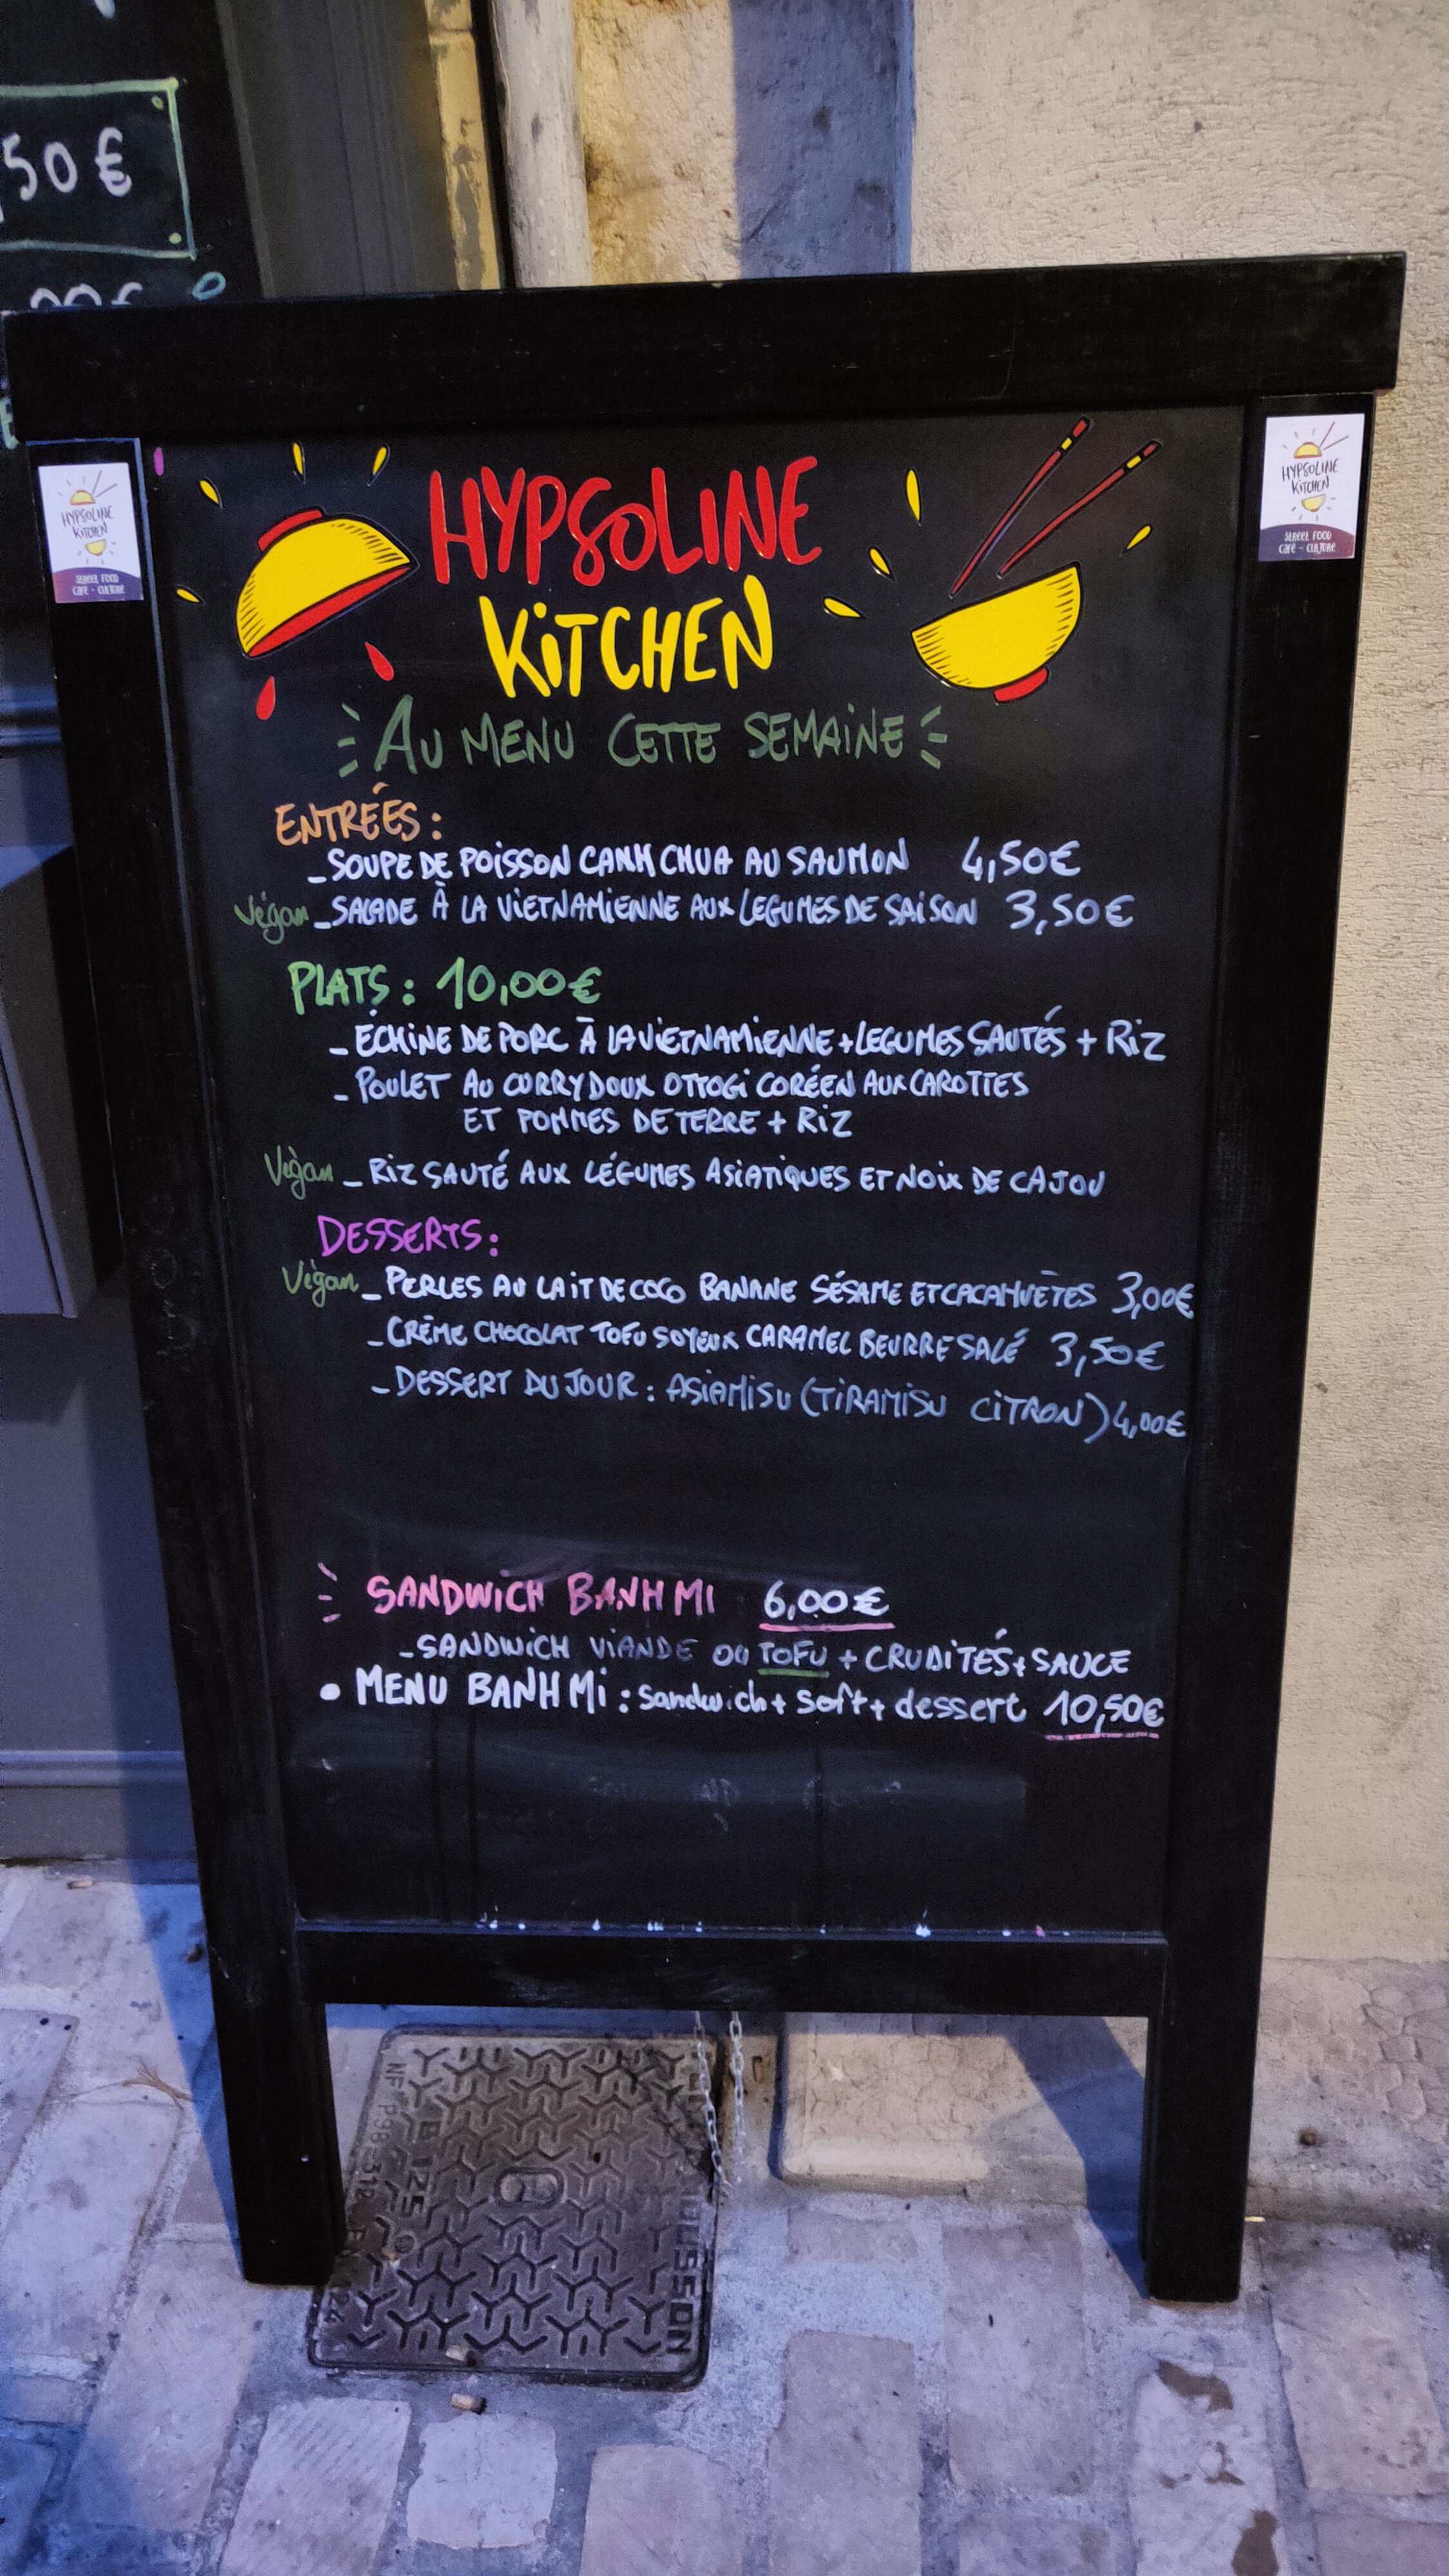 50 €
HYPSOLINE
KITCHEN
STREET FOOD
CAFÉ - CULTURE
HYPSOLINE
KITCHEN
STREET FOOD
CAFÉ - CULTURE
HYPSOLINE
KITCHEN
AU MENU CETTE SEMAINE
ENTRÉES :
- SOUPE DE POISSON CANH CHUA AU SAUMON 4,50€
Végan - SALADE À LA VIETNAMIENNE AUX LEGUMES DE SAISON 3,50€
PLATS : 10,00€
- ECHINE DE PORC À LA VIETNAMIENNE + LEGUMES SAUTÉS + RIZ
- POULET AU CURRY DOUX OTTOGI CORÉEN AUX CAROTTES
ET POMMES DE TERRE + RIZ
Végan - RIZ SAUTÉ AUX LÉGUMES ASIATIQUES ET NOIX DE CAJOU
DESSERTS :
Végan - PERLES AU LAIT DE COCO BANANE SÉSAME ET CACAHUÈTES 3,00€
- CRÈME CHOCOLAT TOFU SOYEUX CARAMEL BEURRE SALÉ 3,50€
- DESSERT DU JOUR : ASIAMISU (TIRAMISU CITRON) 4,00€
SANDWICH BANH MI 6,00€
- SANDWICH VIANDE OU TOFU + CRUDITÉS + SAUCE
• MENU BANH MI : Sandwich + Soft + dessert 10,50€